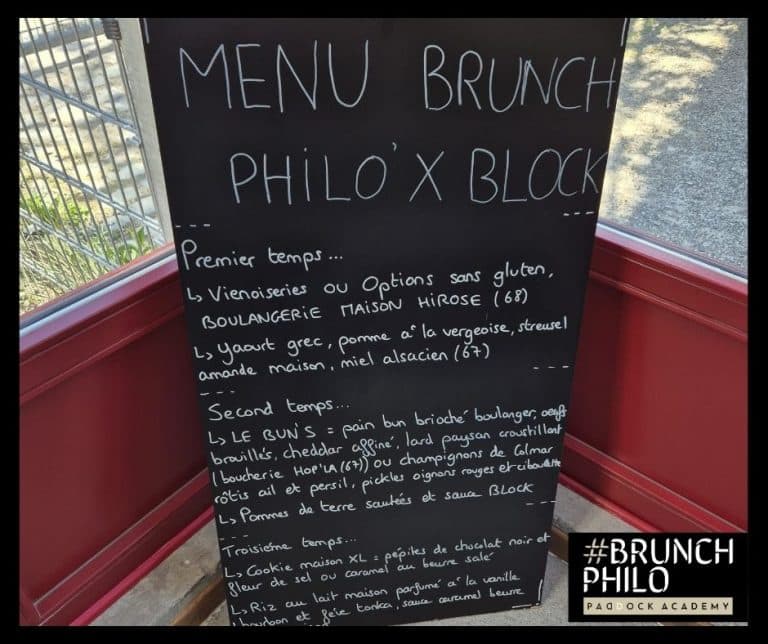 MENU BRUNCH
PHILO' X BLOCK
---
---
Premier temps...
↳ Vienoiseries ou Options sans gluten,
BOULANGERIE MAISON HIROSE (68)
↳ Yaourt grec, pomme à la vergeoise, streusel
amande maison, miel alsacien (67)
---
---
Second temps...
↳ LE BUN'S = pain bun brioché boulanger, oeufs
brouillés, cheddar affiné, lard paysan croustillant
(boucherie HOP'LA (67)) ou champignons de Colmar
rôtis ail et persil, pickles oignons rouges et ciboulette
↳ Pommes de terre sautées et sauce BLOCK
---
---
Troisième temps...
↳ Cookie maison XL = pépites de chocolat noir et
fleur de sel ou caramel au beurre salé
↳ Riz au lait maison parfumé à la vanille
bourbon et fève tonka, sauce caramel beurre
#BRUNCH
PHILO
PADDOCK ACADEMY